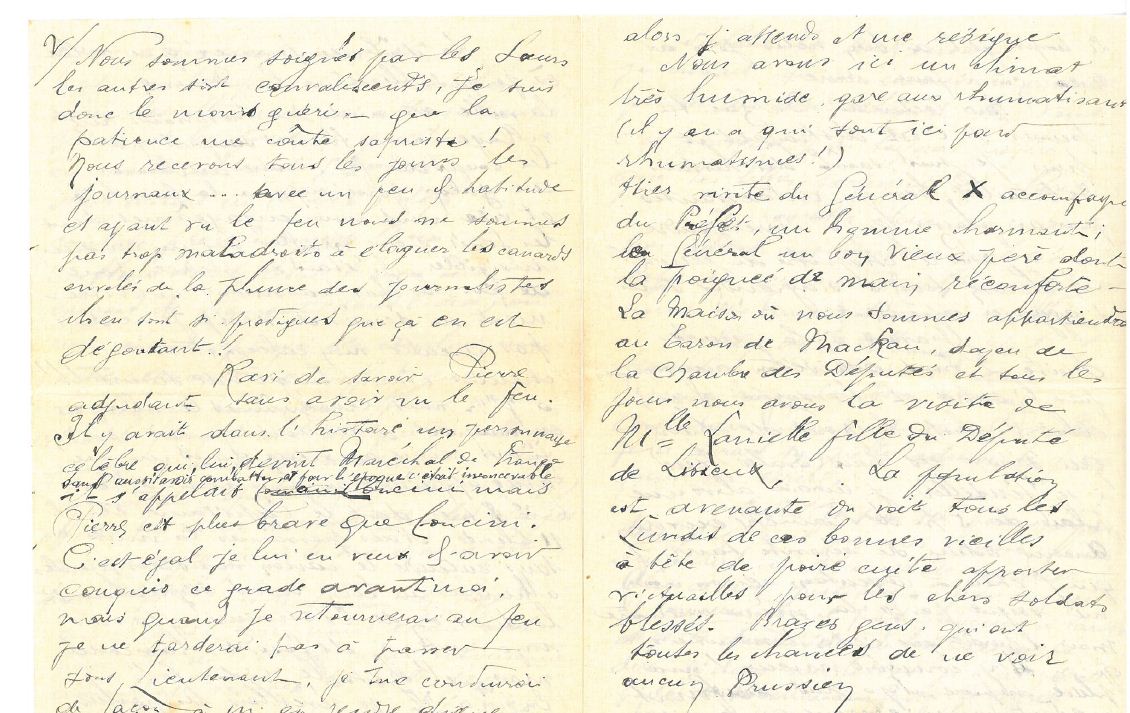 2/ Nous sommes soignés par les Sœurs
les autres sont convalescents, je suis
donc le moins guéri — que la
patience me coûte sapristi !
Nous recevons tous les jours les
journaux ... avec un peu d'habitude
et ayant vu le feu nous ne sommes
pas trop maladroits à élaguer les canards
envolés de la plume des journalistes
ils en sont si prodigues que ça en est
dégoutant..!
Ravi de savoir Pierre
adjudant sans avoir vu le feu.
Il y avait dans l'histoire un personnage
célèbre qui, lui, devint Maréchal de France
sans jamais avoir combattu et pour l'époque c'était inconcevable
il s'appelait Concini mais
Pierre est plus brave que Concini.
C'est égal je lui en veux d'avoir
conquis ce grade avant moi,
mais quand je retournerai au feu
je ne tarderai pas à passer
sous, Lieutenant, je me conduirai
de façon à m'en rendre
alors j'attends et me résigne
Nous avons ici un climat
très humide, gare aux rhumatisants
(il y en a qui sont ici pour
rhumatismes !)
Hier visite du Général X accompagné
du Préfet, un homme charmant ;
le Général un bon vieux père dont
la poignée de main réconforte —
La Maison où nous sommes appartiendra
au baron de Mackau, doyen de
la Chambre des Députés et tous les
jours nous avons la visite de
Mlle Lanielle fille du Député
de Lisieux La population
est avenante on voit tous les
Lundis de ces bonnes vieilles
à tête de poire cuite apporter
victuailles pour les chers soldats
blessés. Braves gens, qui ont
toutes les chances de ne voir
aucun Prussien